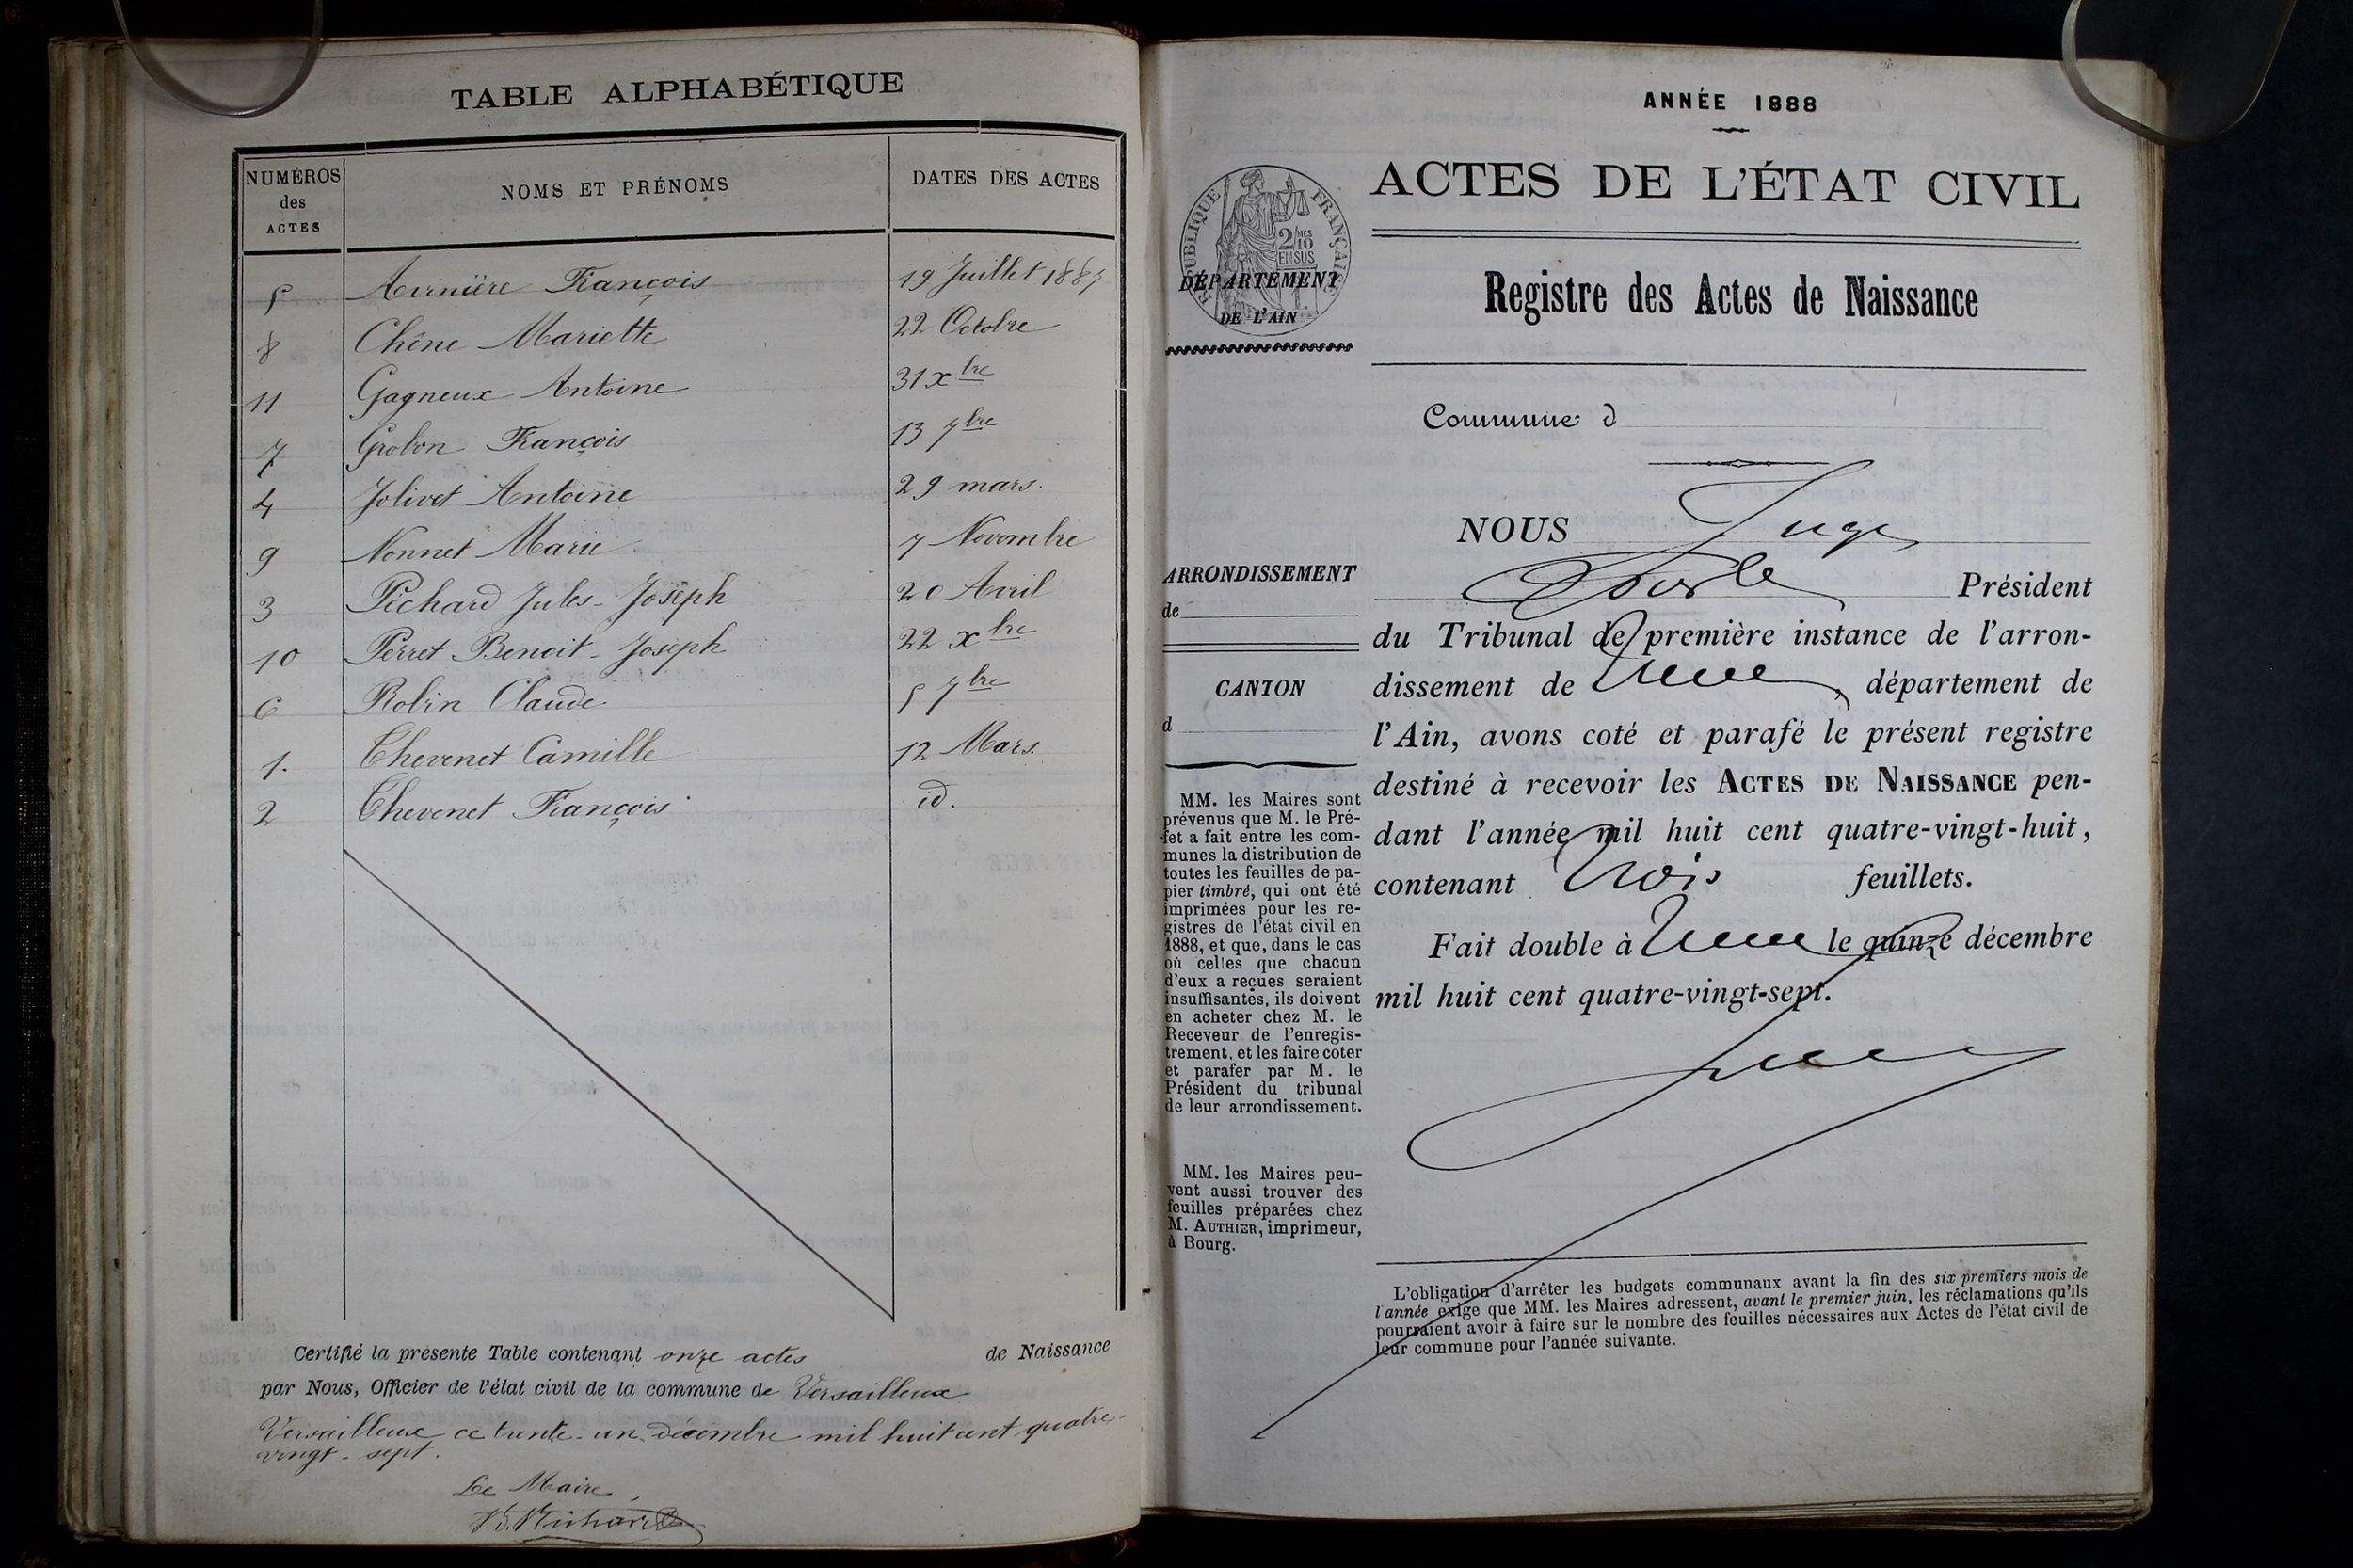 TABLE ALPHABÉTIQUE
NUMÉROS des ACTES
NOMS ET PRÉNOMS
DATES DES ACTES
5 François 19 Juillet 1887
8 Chêne Mariette 22 Octobre
11 Gagneux Antoine 31 xbre
7 Grobon François 13 7bre
4 Jolivet Antoine 29 mars.
9 Nonnet Marie 7 Novembre
3 Pichard Jules-Joseph 20 Avril
10 Perret Benoit-Joseph 22 xbre
6 Robin Claude 5 7bre
1. Thevenet Camille 12 Mars.
2 Thevenet François id.
Certifié la présente Table contenant onze actes de Naissance
par Nous, Officier de l'état civil de la commune de Versailleux
Versailleux ce trente-un décembre mil huit cent quatre-
vingt-sept.
Le Maire,
ANNÉE 1888
RÉPUBLIQUE FRANÇAISE
2/10
EN SUS
DÉPARTEMENT
DE L'AIN
ACTES DE L'ÉTAT CIVIL
Registre des Actes de Naissance
Commune d
ARRONDISSEMENT
de
CANTON
d
MM. les Maires sont
prévenus que M. le Pré-
fet a fait entre les com-
munes la distribution de
toutes les feuilles de pa-
pier timbré, qui ont été
imprimées pour les re-
gistres de l'état civil en
1888, et que, dans le cas
où celles que chacun
d'eux a reçues seraient
insuffisantes, ils doivent
en acheter chez M. le
Receveur de l'enregis-
trement, et les faire coter
et parafer par M. le
Président du tribunal
de leur arrondissement.
MM. les Maires peu-
vent aussi trouver des
feuilles préparées chez
M. AUTHIER, imprimeur,
à Bourg.
NOUS Juge
Président
du Tribunal de première instance de l'arron-
dissement de , département de
l'Ain, avons coté et parafé le présent registre
destiné à recevoir les ACTES DE NAISSANCE pen-
dant l'année mil huit cent quatre-vingt-huit,
contenant trois feuillets.
Fait double à le quinze décembre
mil huit cent quatre-vingt-sept.
L'obligation d'arrêter les budgets communaux avant la fin des six premiers mois de
l'année exige que MM. les Maires adressent, avant le premier juin, les réclamations qu'ils
pourraient avoir à faire sur le nombre des feuilles nécessaires aux Actes de l'état civil de
leur commune pour l'année suivante.